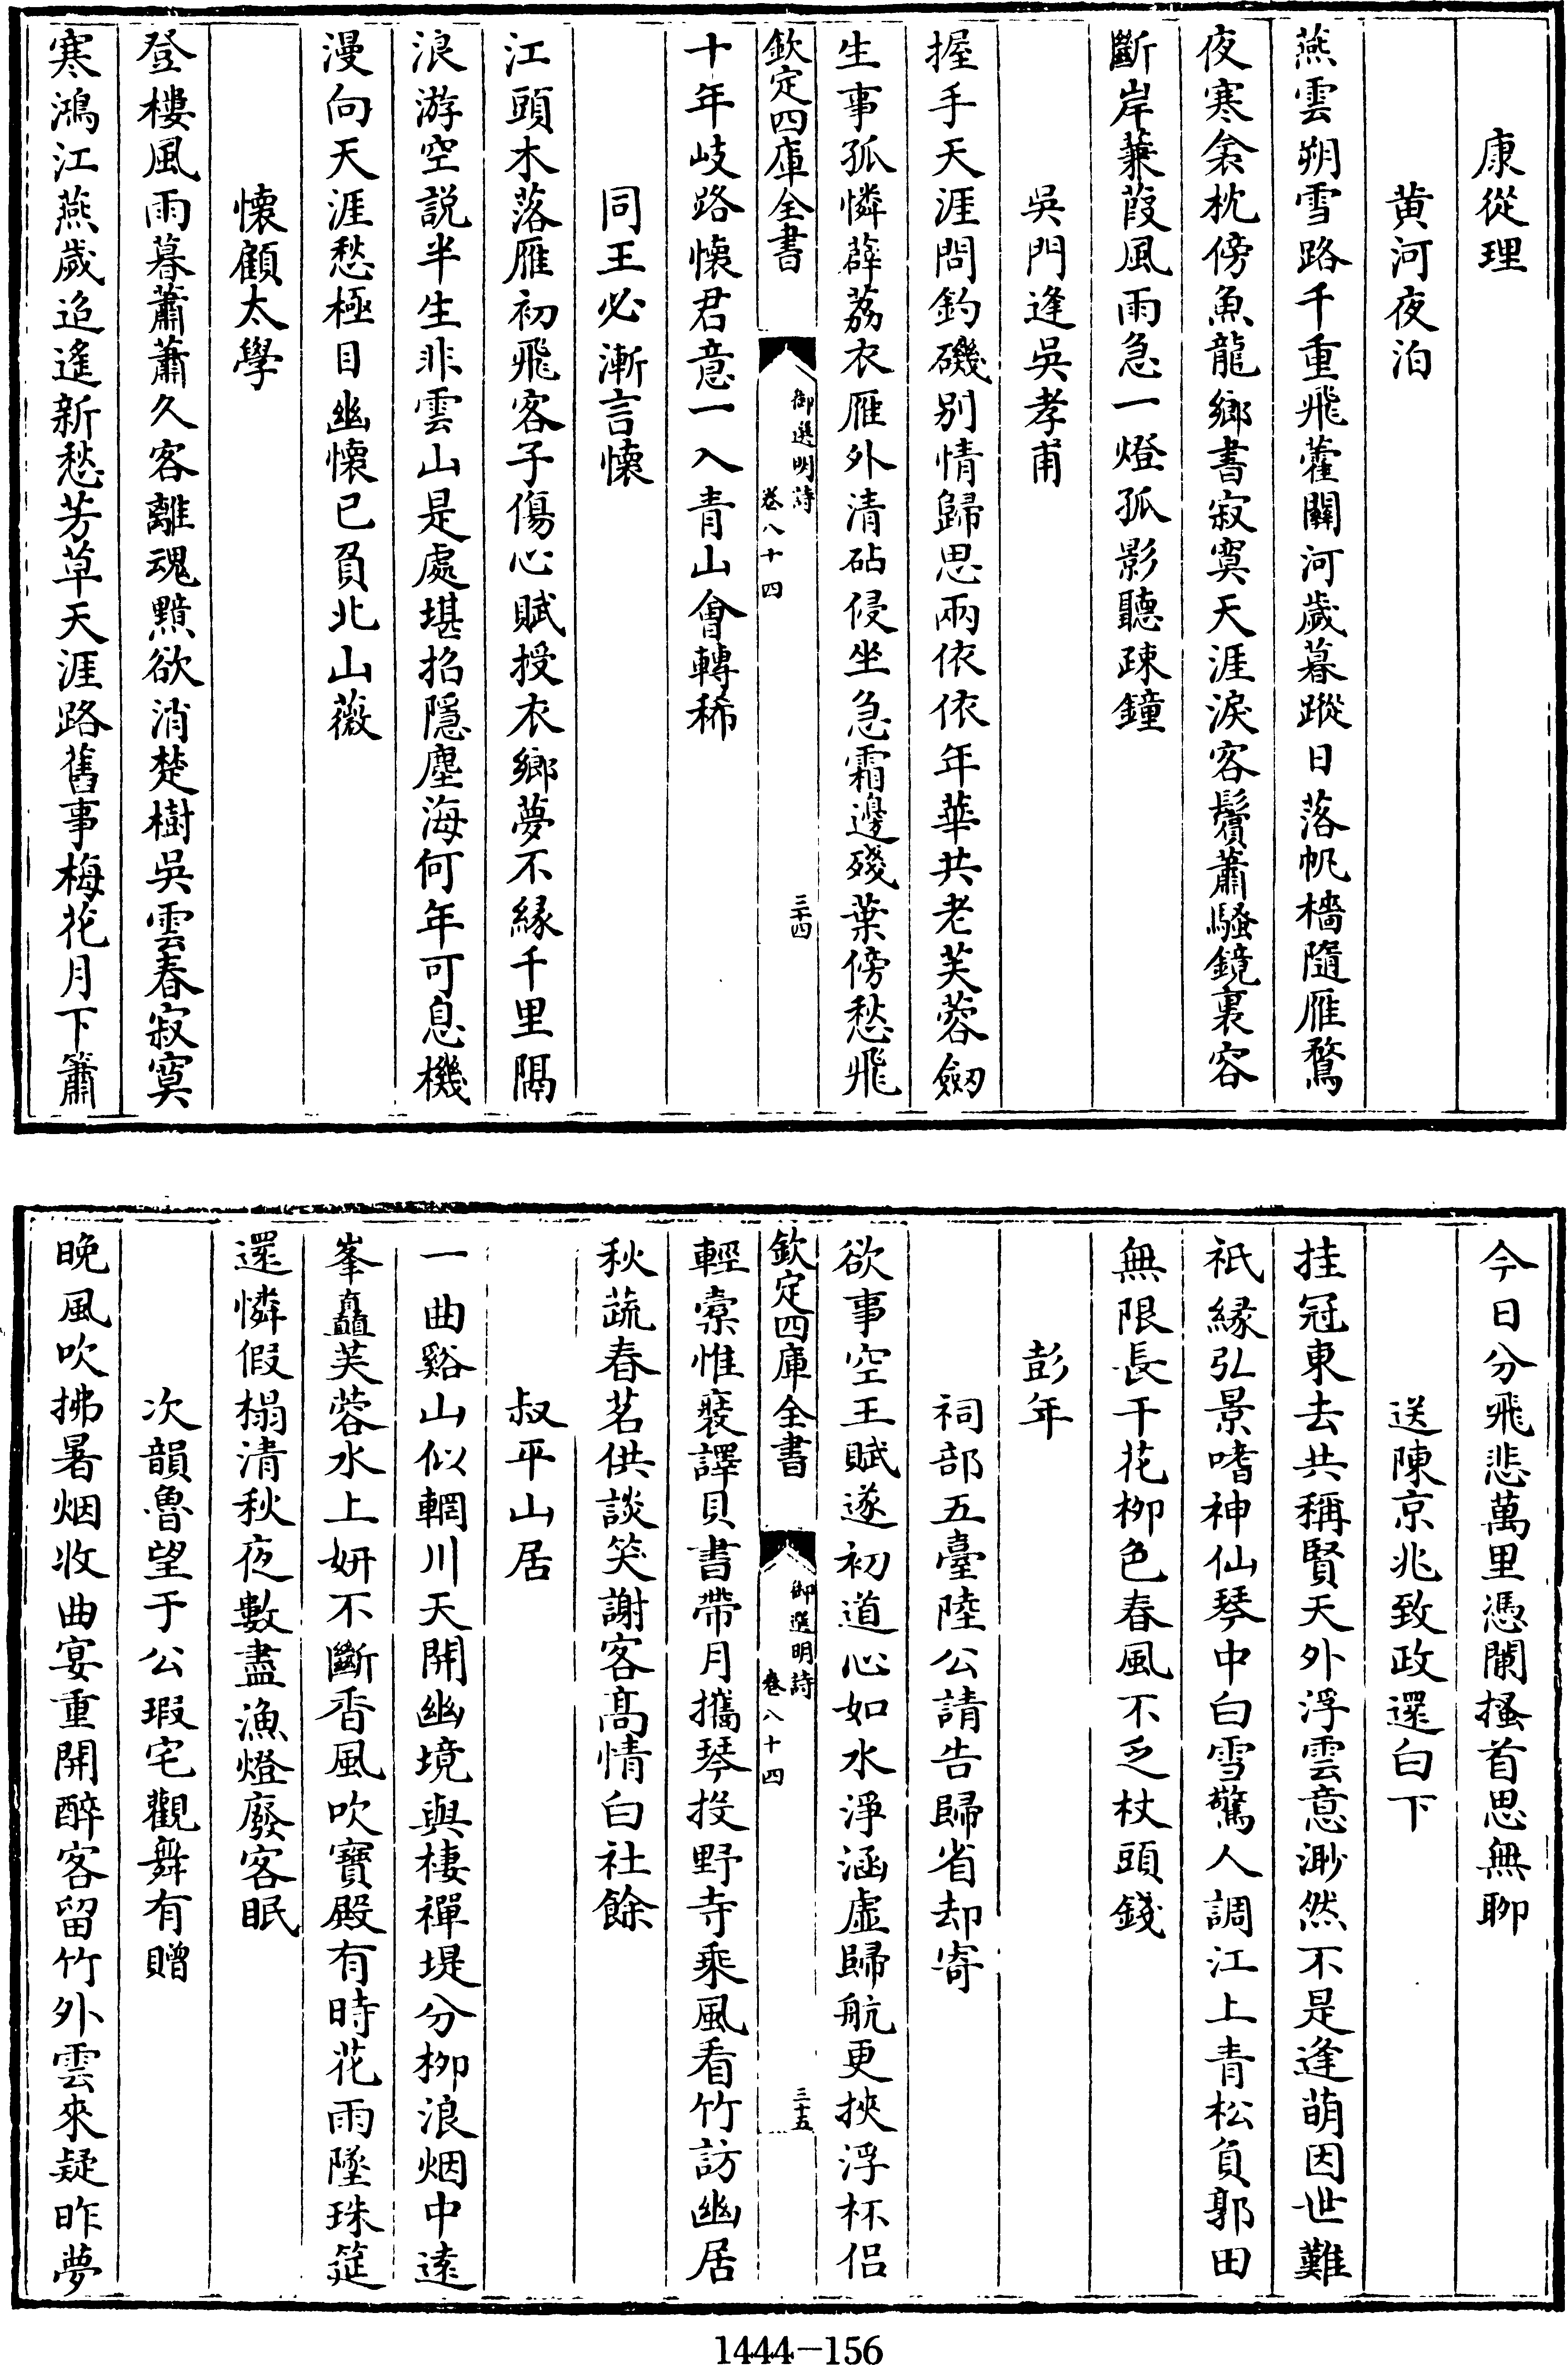 康從理
黄河夜泊
燕雲朔雪路千重飛藿關河歲暮蹤日落帆檣隨雁鶩
夜寒衾枕傍魚龍鄉書寂寞天涯淚客鬢蕭騷鏡裏容
斷岸蒹葭風雨急一燈孤影聽疎鐘
吳門逢吳孝甫
握手天涯問釣磯别情歸思兩依依年華共老芙蓉劒
生事孤憐薜荔衣雁外清砧侵坐急霜邊殘葉傍愁飛
欽定四庫全書
御選明詩
卷八十四
三十四
十年岐路懷君意一入青山會轉稀
同王必漸言懷
江頭木落雁初飛客子傷心賦授衣鄉夢不縁千里隔
浪游空説半生非雲山是處堪招隱塵海何年可息機
漫向天涯愁極目幽懷已負北山薇
懷顧太學
登樓風雨暮蕭蕭久客離魂黯欲消楚樹吳雲春寂寞
寒鴻江燕歲迢遙新愁芳草天涯路舊事梅花月下簫
今日分飛悲萬里憑闌搔首思無聊
送陳京兆致政還白下
挂冠東去共稱賢天外浮雲意渺然不是逢萌因世難
祇縁弘景嗜神仙琴中白雪驚人調江上青松負郭田
無限長干花柳色春風不乏杖頭錢
彭年
祠部五臺陸公請告歸省却寄
欲事空王賦遂初道心如水淨涵虛歸航更挾浮杯侣
欽定四庫全書
御選明詩
卷八十四
三十五
輕橐惟裝譯貝書帶月攜琴投野寺乘風看竹訪幽居
秋蔬春茗供談笑謝客髙情白社餘
叔平山居
一曲谿山似輞川天開幽境與棲禪堤分柳浪烟中逺
峯矗芙蓉水上妍不斷香風吹寶殿有時花雨墜珠筵
還憐假榻清秋夜數盡漁燈廢客眠
次韻魯望于公瑕宅觀舞有贈
晚風吹拂暑烟收曲宴重開醉客留竹外雲來疑昨夢
1444-156